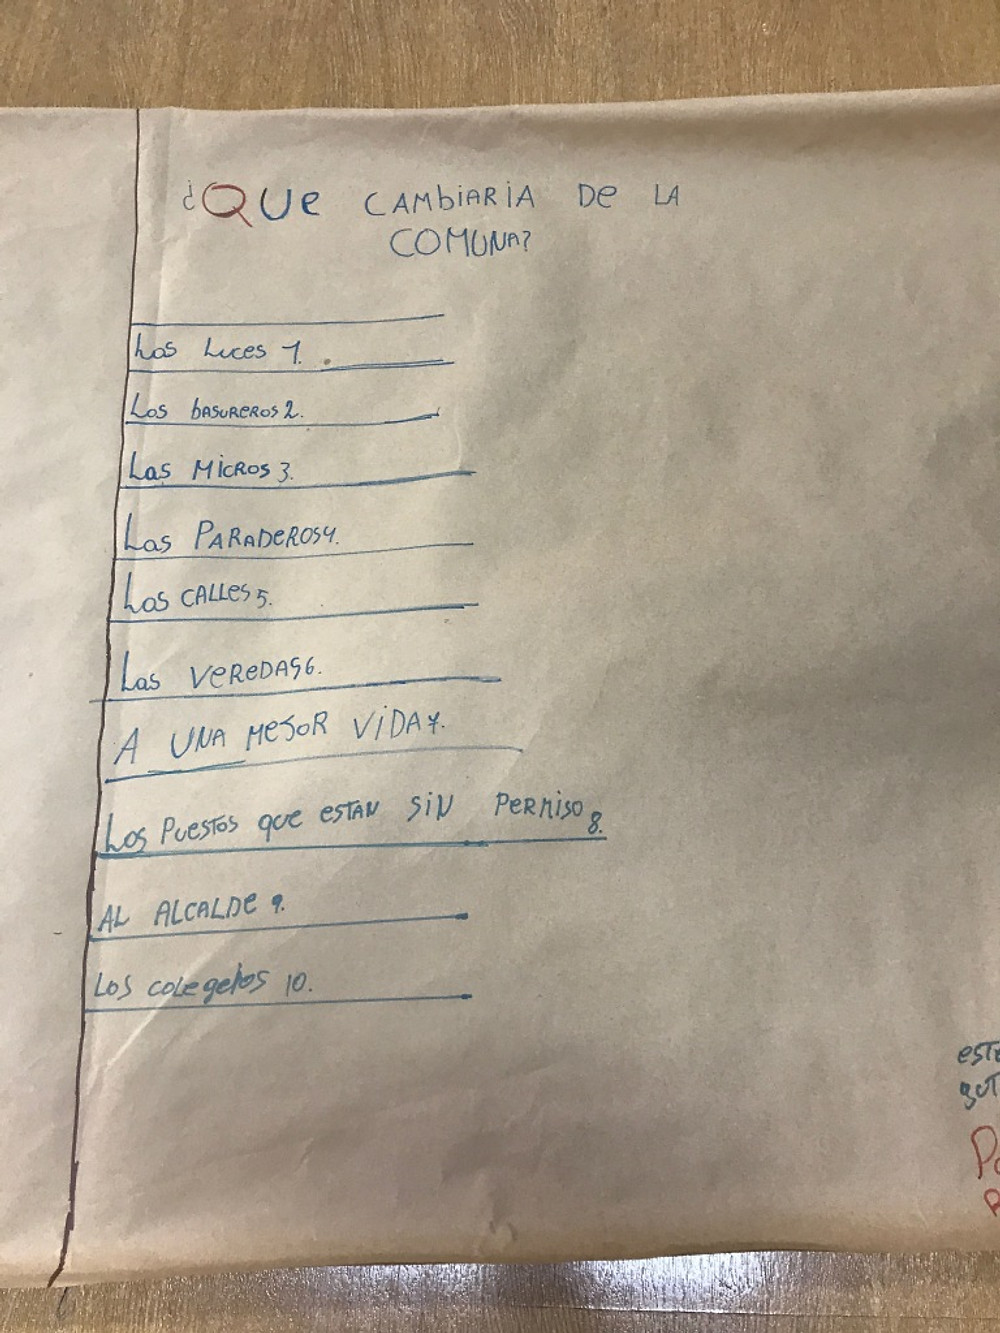 ¿QUe CAMbiARiA De LA
COMUNA?
Las Luces 1.
Los bASUReROS 2.
Las MiCROS 3.
Las PARADeROS 4.
Las CALLes 5.
Las VeReDAS 6.
A UNA MeJOR ViDA 7.
Los PuesTOS que eSTAN SiN PeRMiSO 8.
AL ALCALDe 9.
LOS COLegeios 10.